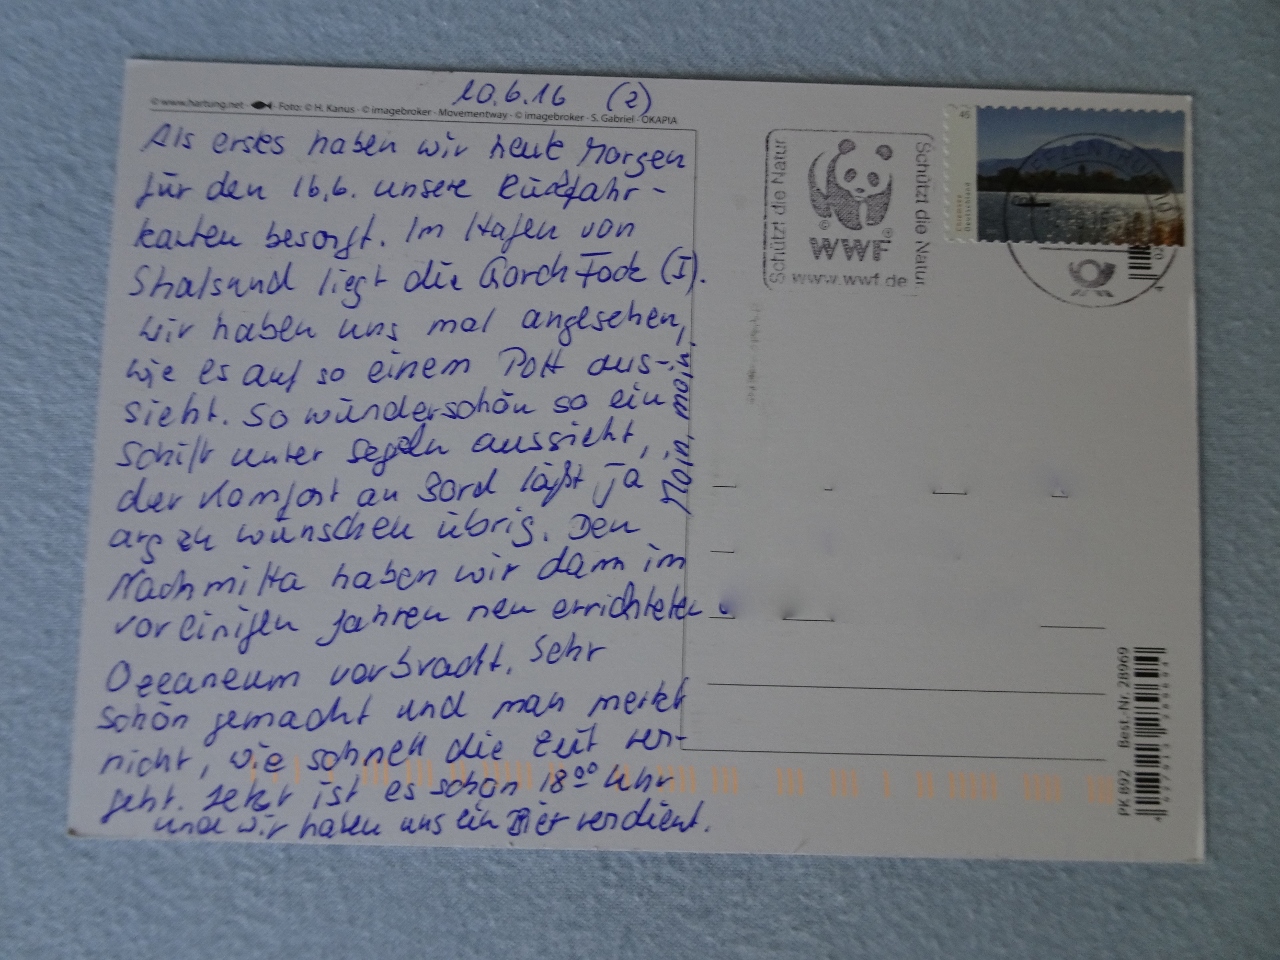 10.6.16 (2)
© www.hartung.net · Foto: © H. Kanus · © imagebroker · Movementway · © imagebroker · S. Gabriel · OKAPIA
Als erstes haben wir heute Morgen
für den 16.6. unsere Rückfahr-
karten besorgt. Im Hafen von
Stralsund liegt die Gorch Fock (I).
Wir haben uns mal angesehen,
wie es auf so einem Pott aus-
sieht. So wunderschön so ein
Schiff unter Segeln aussieht,
der Komfort an Bord läßt ja
arg zu wünschen übrig. Den
Nachmitta haben wir dann im
vor einigen Jahren neu errichteten
Ozeaneum verbracht. Sehr
schön gemacht und man merkt
nicht, wie schnell die Zeit ver-
geht. Jetzt ist es schon 18⁰⁰ Uhr
und wir haben uns ein Bier verdient.
Moin, moin.
Schützt die Natur
WWF
www.wwf.de
Schützt die Natur
45
PK 892 Best.-Nr. 28969